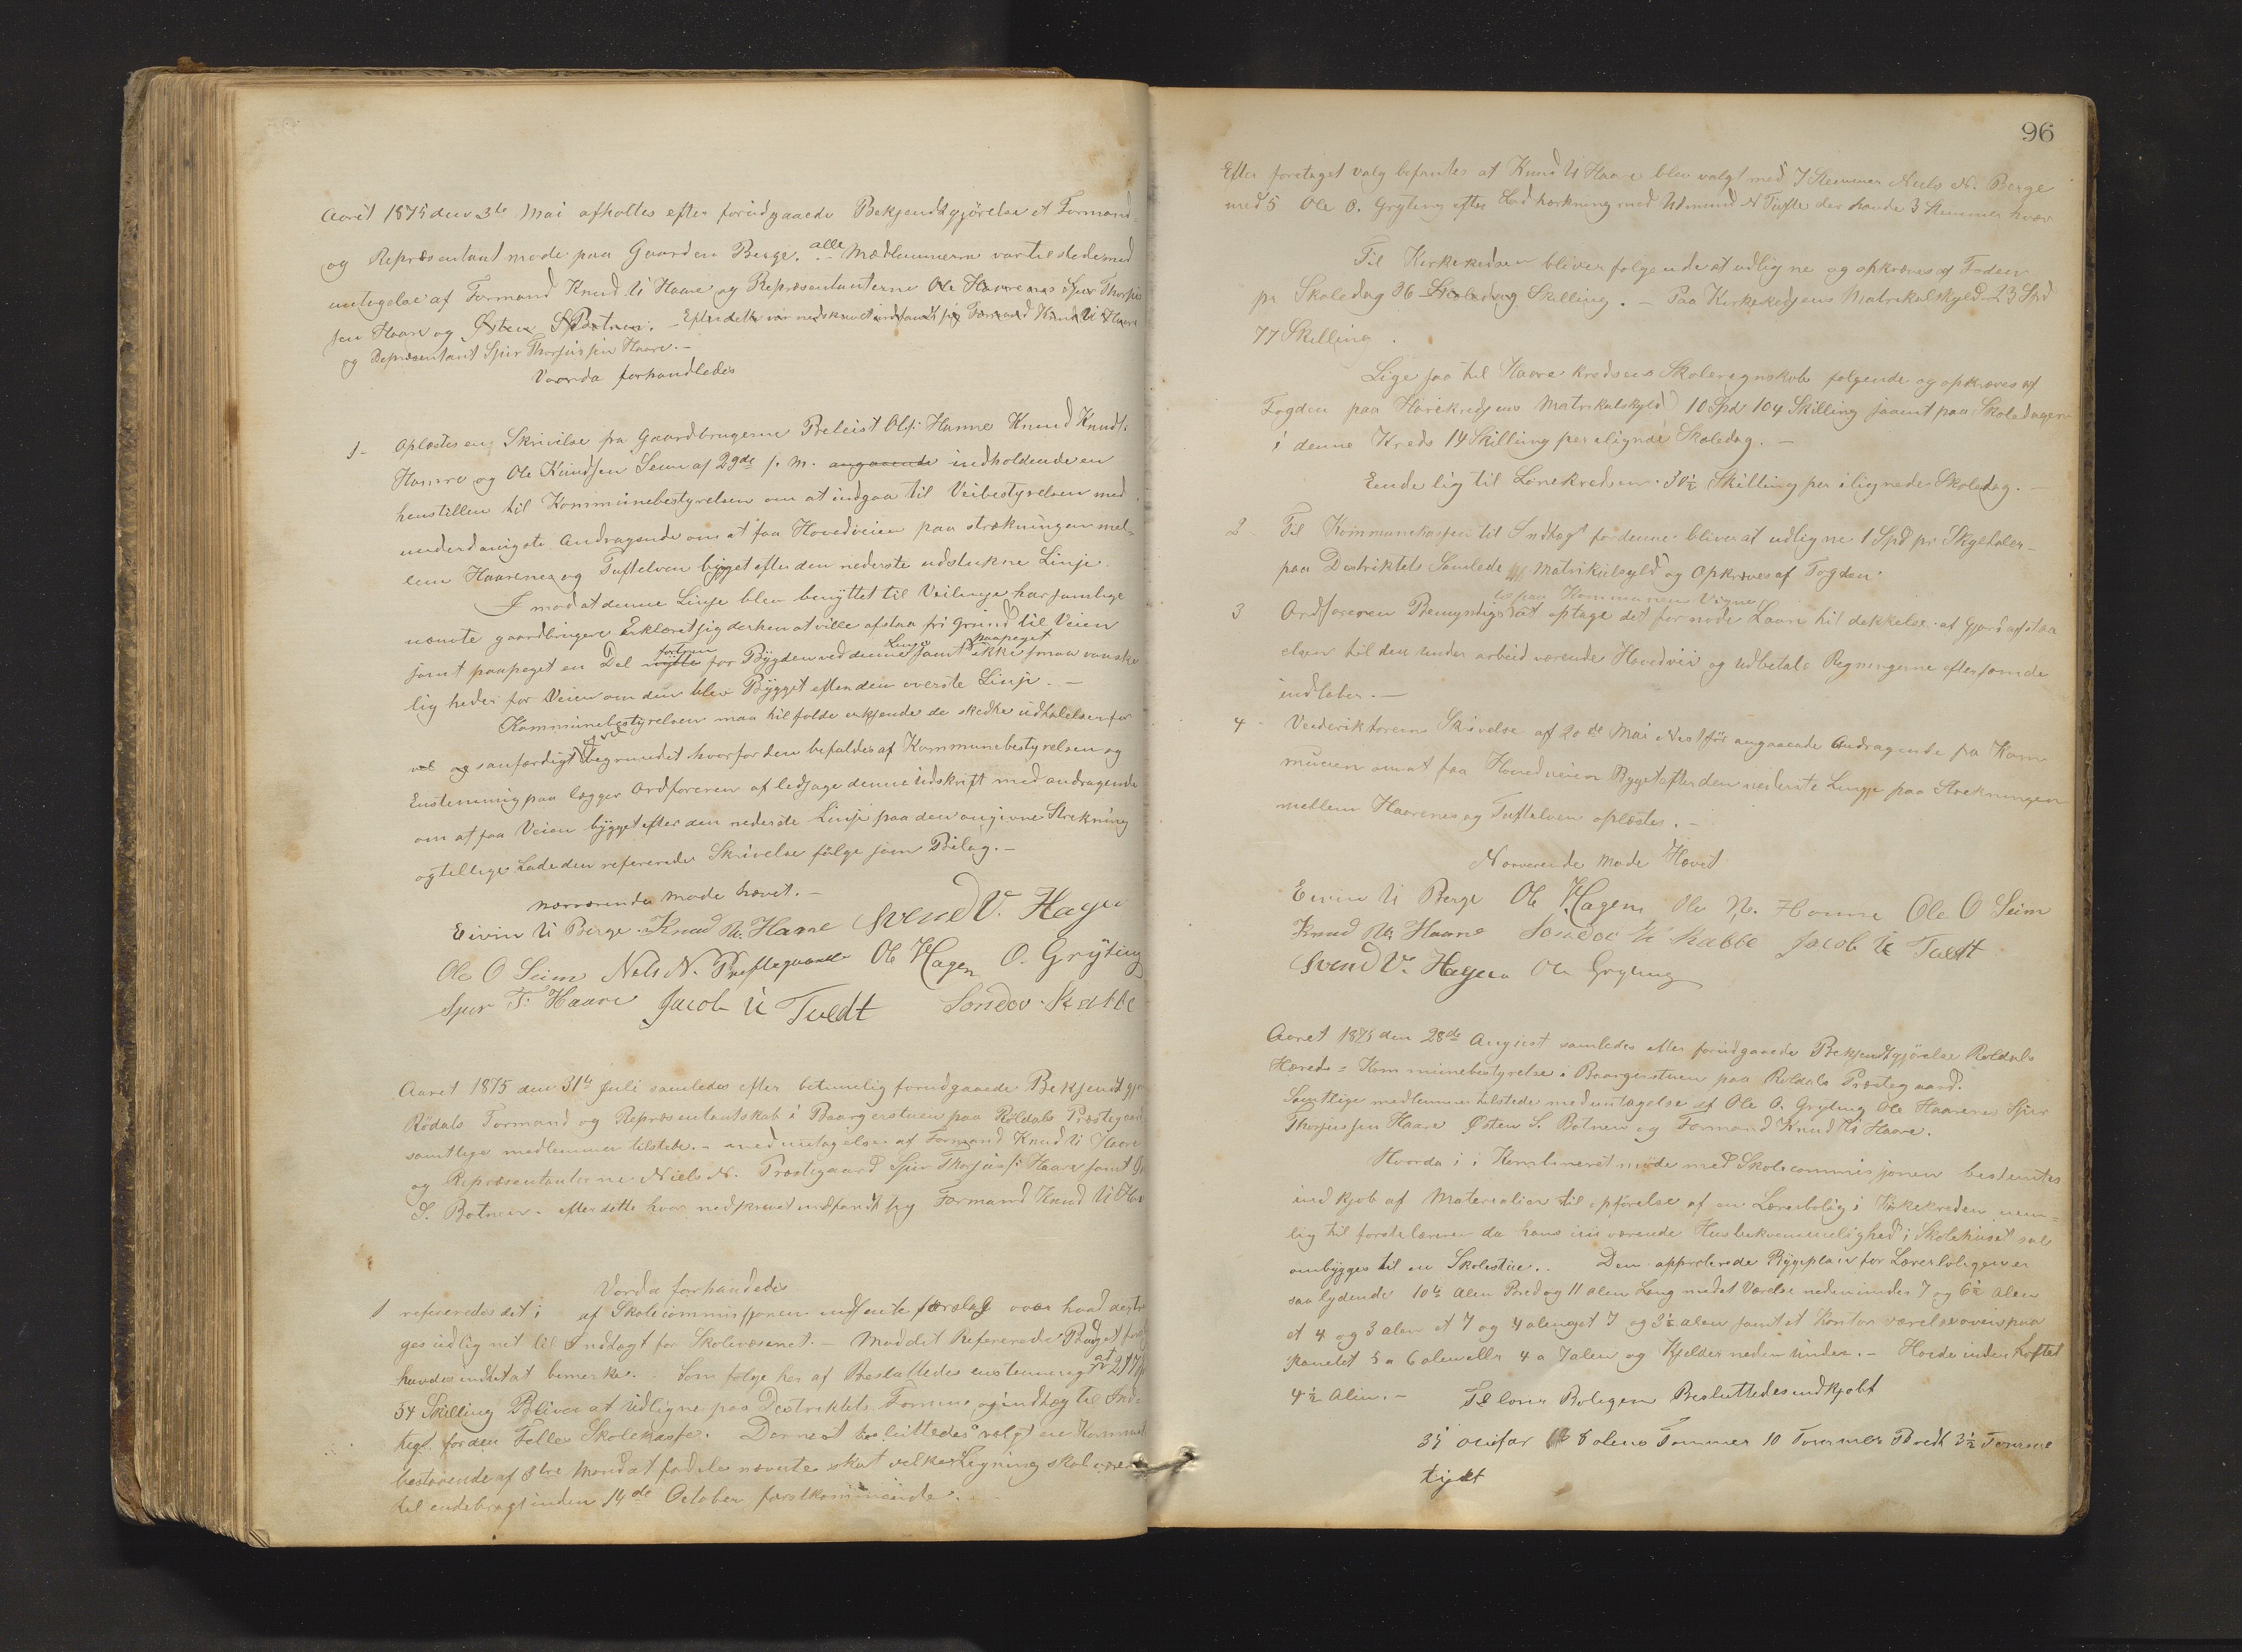 Aaret 1875 den 3die Mai afholtes efter forudgaaede Bekjendtgjørelse et Formand-
og Repræsentant møde paa Gaarden Berge. alle Medlemmerne var til stede med
undtagelse af Formand Knud U Haare og Repræsentanterne Ole Haarenes Sjur Thorjus
sen Haare og Østen S Botnen. – Efter dette var nedskrevet indfandt sig Formand Knud U Haare
og Repræsentant Sjur Thorjussen Haare. –
Vorda forhandledes
1- Oplæstes en Skrivelse fra Gaardbrugerne Breleist Ols: Hamre Knud Knuds.
Hamre og Ole Knudsen Seim af 29de f. M. angaaende indholdende en
henstillen til Kommunebestyrelsen om at indgaa til Veibestyrelsen med
underdanigste Andragende om at faa Hovedveien paa strækningen mel-
lem Haarenes og Tuftelven bygget efter den nederste udstukne Linje.
I mod at denne Linje blev benyttet til Veilinje har samtlige
nævnte gaardbrugere Erklæret sig derhen at ville afstaa fri Grund til Veien
samt paapeget en Del nytte fortrin for Bygden ved denne Linje samt paapeget ikke smaa vanske
lig heder for Veien om den blev Bygget efter den øverste Linje. –
Kommunebestyrelsen maa tilfolde erkjende de skedte udtalelser for
vel og sanfærdigt begrundet hvorfor den befaldes af Kommunebestyrelsen og
Enstemmig paa lægger Ordføreren af ledsage denne Udskrift med andragende
om at faa Veien bygget efter den nederste Linje paa den angivne Strekning
og tillige Lade den refererede Skrivelse følge som Bilag. –
nærværende møde hævet. –
Eivin U Berge Knud N. Haare Svend V. Hagen
Ole O Seim Nels N. Prestegaard Ole Hagen O. Gryting
Sjur T. Haare Jacob U Tvedt Sondov Rabbe
Aaret 1875 den 31te Juli samledes efter betimelig forudgaaede Bekjendtgjø
Röldals Formand og Repræsentantskab i Baargerstuen paa Röldals Præstegaar
samtlige medlemmer tilstede. – med undtagelse af Formand Knud U Haare
og Repræsentanterne Niels N. Præstegaard Sjur Thorjus s: Haare samt Øs
S. Botnen. efter dette hvar nedskrevet indfandt sig Formand Knud U Haa
Vorda forhandledes
1 refereredes det i af Skolecommissjonen indsente forslag over hvad der tr
ges udlignet til Indtægt for Skolevæsenet. – Mod det Refererede Budget fand
havdes indtet at bemerke. Som følge her af Besluttedes enstemmig at 217 Sp
54 Skilling Bliver at Udligne paa Destriktets Formue og indtæg til Ind-
tægt for den Felles Skolekasse. Dernest besluttedes valgt en Kommi
bestaaende af 3tre Mænd at fordele nævnte skat velken Ligning skal være
til endebragt inden 14de October førstkommende.
96
Efter foretaget valg befantes at Knud U Haare blev valgt med 7 Stemmer Niels N. Berge
med 5 Ole O. Gryting efter Lodtrækning med Udmund N Tufte der havde 3 Stemmer hvær
Til Kirkekredsen bliver følgende at udligne og opkræves af Foden
pr Skoledag 36 Skoledag Skilling. – Paa Kirkekredsens Matrikulskyld 23 Spd
77 Skilling.
Lige saa til Haare kredsens Skoleregnskab følgende og opkræves af
Fogden paa Harekredsens Matrikulskyld 10 Spd 104 Skilling samt paa Skoledagen
i denne Kreds 14 Skilling per ilignede Skoledag. –
Ende lig til Lønekredsen 30½ Skilling per ilignede Skoledag. –
2 Til Kommunekassen til Indtægt for denne bliver at udligne 1 Spd pr Skyldaler
paa Destriktets Samlede Matrikulskyld og Opkræves af Fogden.
3 Ordføreren Bemyndiges til paa Kommunens Vegne at optage det for nøde Laan til dekkelse af Gjordafstaa
elsen til den under arbeid værende Hovedvei og Udbetale Regningerne eftersom de
indløber. –
4 Veiderektørens Skrivelse af 20de Mai Nestfør angaaende Andragende fra Kom
munen om at faa Hovedveien Bygget efter den nederste Linje paa Strekningen
mellem Haarenes og Tuftelven oplæstes. –
Nærværende Møde Hævet
Eivin U Berge Ole Hagen Ole N. Hamre Ole O Seim
Knud N. Haare Sondov K Rabbe Jacob U Tvedt
Svend V. Hagen Ole Gryting
Aaret 1875 den 28de August samledes efter forudgaaede Bekjendtgjörelse Røldals
Hereds= Kommunebestyrelse i Baargerstuen paa Røldals Præstegaard.
Samtlige medlemmer tilstede med undtagelse af Ole O. Gryting Ole Haarene Sjur
Thorjussen Haare Østen S. Botnen og Formand Knud U Haare.
Hvorda i i Kombineret møde med Skolecommissjonen bestemtes
indkjøb af Materialier til opförelse af en Lærerbolig i Kirkekredsen nem-
lig til første læreren da hans nu værende Husbekvemmelighed i Skolehuset skal
ombygges til en Skolestue. . Den approberede Bygeplan for Lærerboligen er
saa lydende 10½ Alen Bred og 11 alen Lang med et Værelse neden under 7 og 6½ Alen
et 4 og 3 alen et 7 og 4 alen get 7 og 3½ alen samt et Kontor værelse oven paa
panelet 5 a 6 alen eller 4 a 7 alen og Kjelder neden under. – Høide under Loftet
4½ Alin. – Til lærer Boligen Besluttedes indkjøbt
35 omfar 12 8 alens Tømmer 10 Tommer Bredt 3½ Tomme
tykt